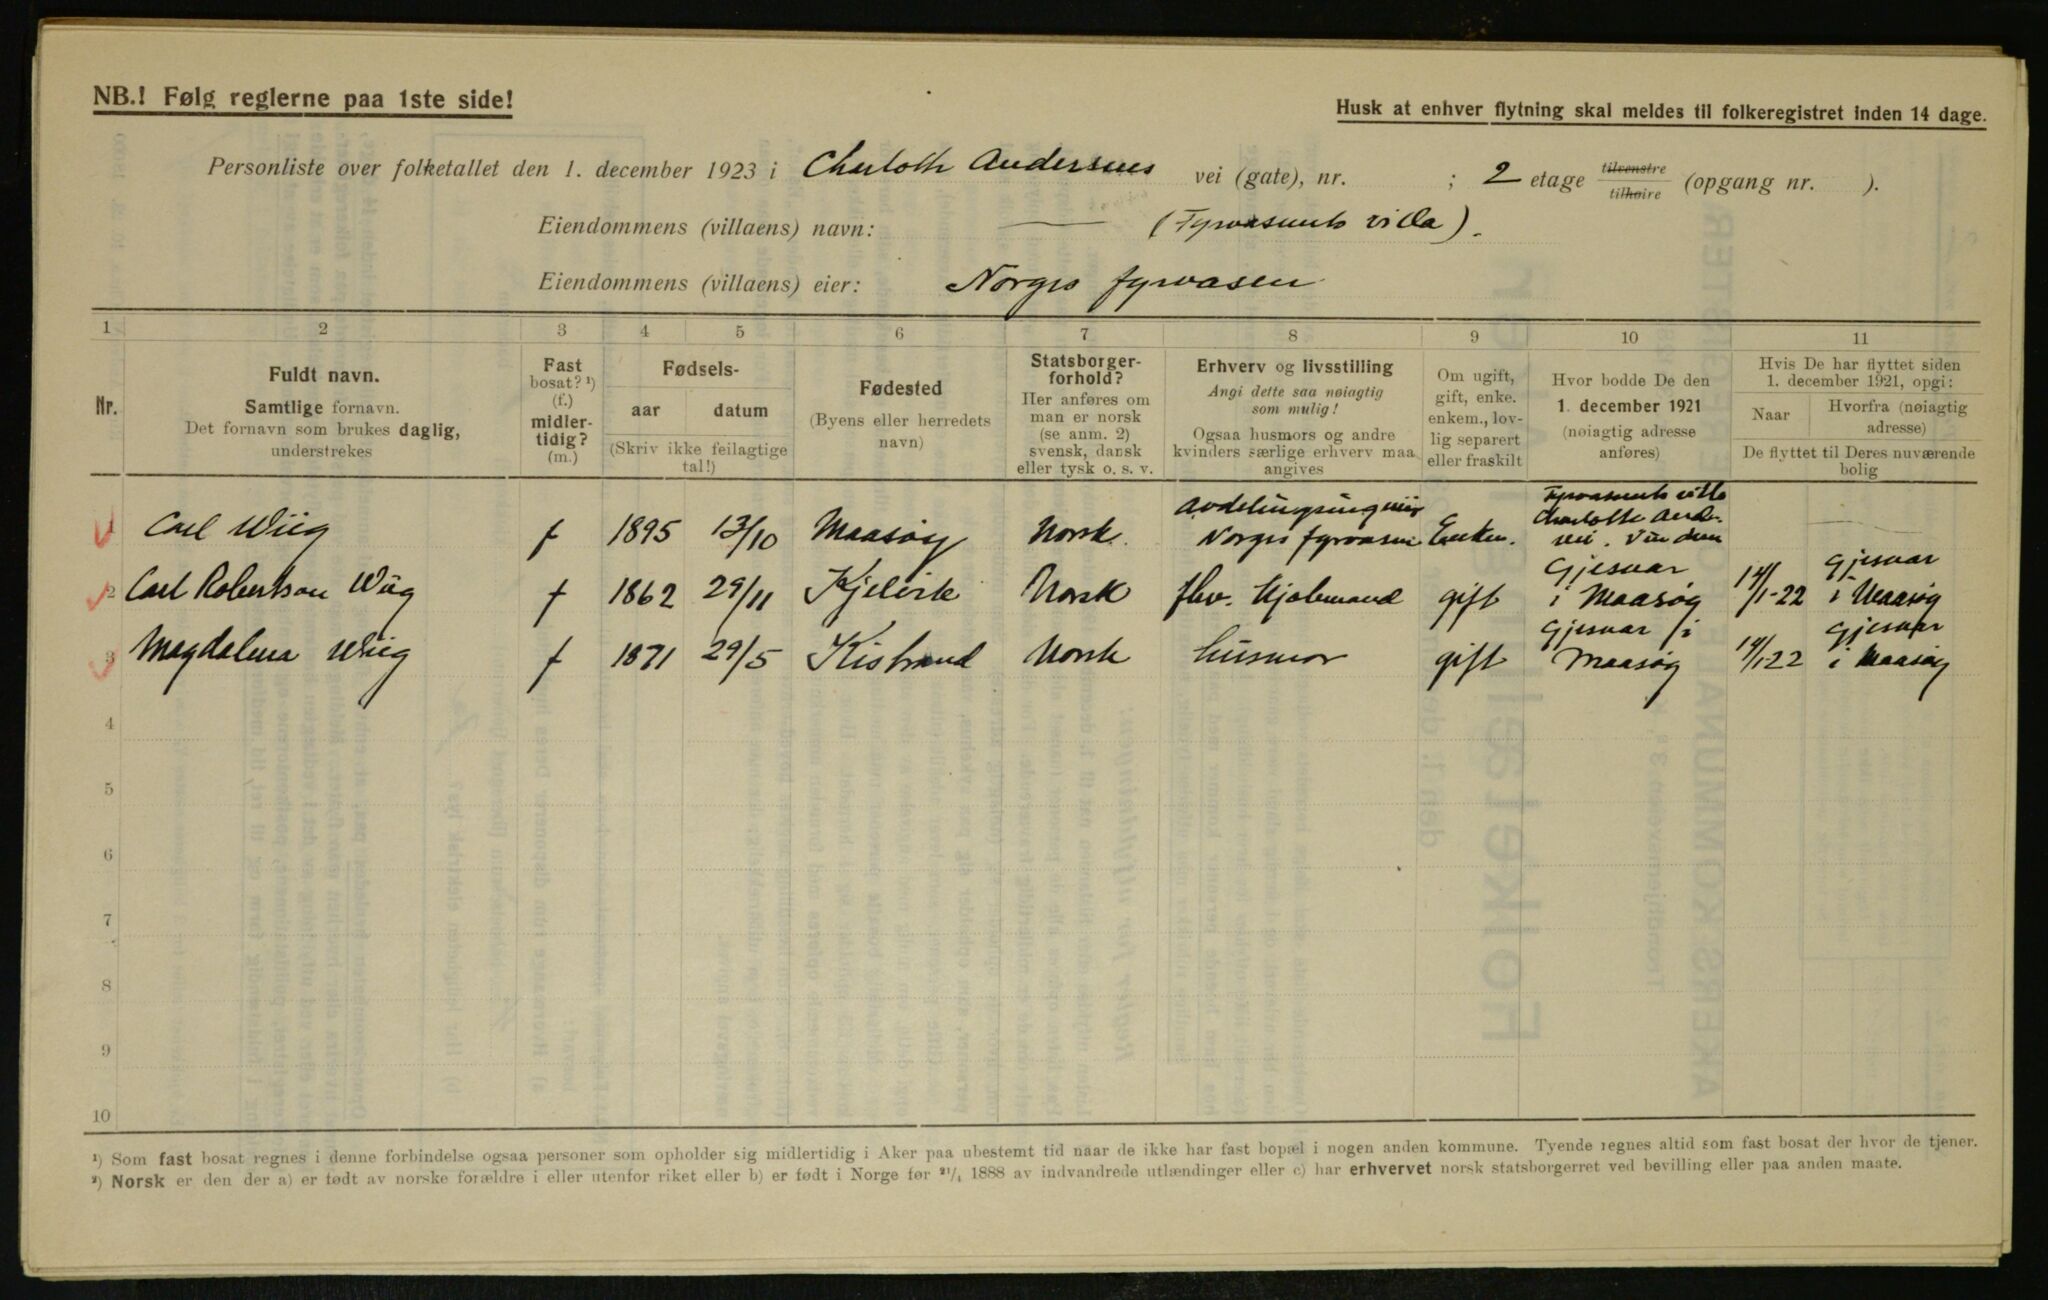 NB.! Følg reglerne paa 1ste side!
Husk at enhver flytning skal meldes til folkeregistret inden 14 dage.
Personliste over folketallet den 1. december 1923 i Charloth Andersens vei (gate), nr. ; 2 etage tilvenstre tilhøire (opgang nr. ).
Eiendommens (villaens) navn: (Fyrvæsenets villa).
Eiendommens (villaens) eier: Norges fyrvæsen
1 2 3 4 5 6 7 8 9 10 11
Nr.
Fuldt navn.
Samtlige fornavn.
Det fornavn som brukes daglig,
understrekes
Fast
bosat? ¹)
(f.)
midler-
tidig?
(m.)
Fødsels-
aar datum
(Skriv ikke feilagtige
tal!)
Fødested
(Byens eller herredets
navn)
Statsborger-
forhold?
Her anføres om
man er norsk
(se anm. 2)
svensk, dansk
eller tysk o. s. v.
Erhverv og livsstilling
Angi dette saa nøiagtig
som mulig!
Ogsaa husmors og andre
kvinders særlige erhverv maa
angives
Om ugift,
gift, enke.
enkem., lov-
lig separert
eller fraskilt
Hvor bodde De den
1. december 1921
(nøiagtig adresse
anføres)
Hvis De har flyttet siden
1. december 1921, opgi:
Naar
Hvorfra (nøiagtig
adresse)
De flyttet til Deres nuværende
bolig
1 Carl Wiig f 1895 13/10 Maasøy Norsk. Avdelingsingeniør Norges fyrvæsen Enkem. Fyrvæsenets villa Charlotte Ander. vei.
2 Carl Robertson Wiig f 1862 29/11 Kjelvik Norsk fhv. Kjøbmand gift Gjesvær i Maasøy 14/1-22 Gjesvær i Maasøy
3 Magdalena Wiig f 1871 29/5 Kistrand Norsk husmor gift Gjesvær i Maasøy 14/1-22 Gjesvær i Maasøy
4
5
6
7
8
9
10
¹) Som fast bosat regnes i denne forbindelse ogsaa personer som opholder sig midlertidig i Aker paa ubestemt tid naar de ikke har fast bopæl i nogen anden kommune. Tyende regnes altid som fast bosat der hvor de tjener.
²) Norsk er den der a) er født av norske forældre i eller utenfor riket eller b) er født i Norge før ²¹/₁ 1888 av indvandrede utlændinger eller c) har erhvervet norsk statsborgerret ved bevilling eller paa anden maate.